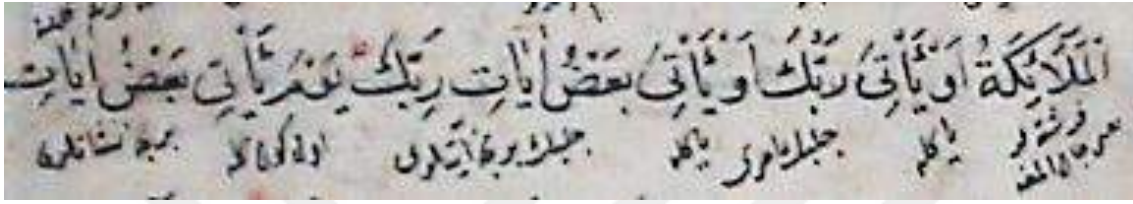 الْمَلَائِكَةُ اَوْ يَأْتِىَ رَبُّكَ اَوْ يَأْتِىَ بَعْضُ اٰيَاتِ رَبِّكَ يَوْمَ يَأْتِى بَعْضُ اٰيَاتِ
يا كله چلبك امرى يا كله چلبك برنجه آيتلرى اول كون كه كله برنجه نشانلرى